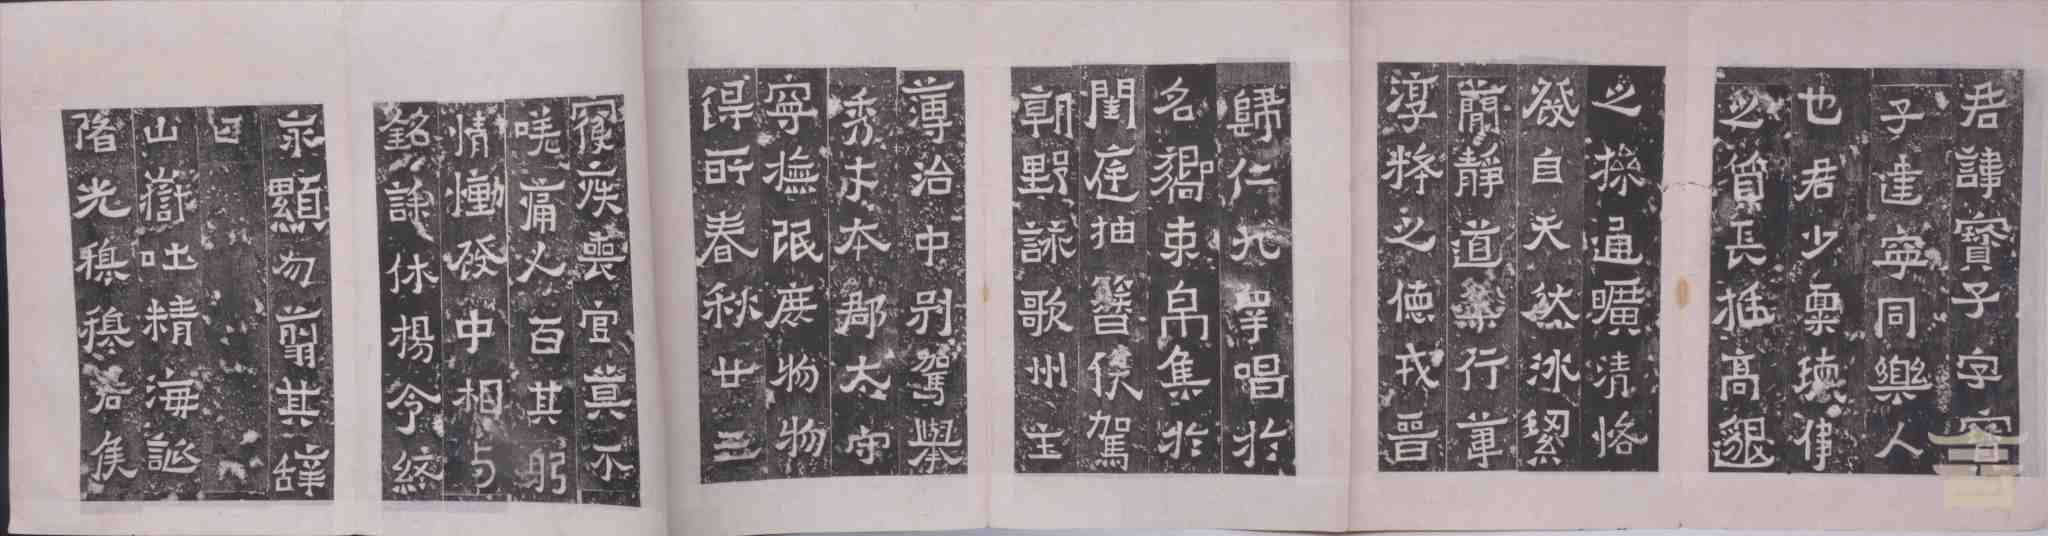 君諱寶子字寶
子建寧同樂人
也君少稟瓌偉
之質長挺高邈
之操通曠清恪
發自天然冰絜
簡靜道兼行葦
淳粹之德戎晉
歸仁九皋唱於
名嚮束帛集於
閨庭抽簪俟駕
朝野詠歌州主
簿治中別駕舉
秀才本郡太守
寧撫氓庶物物
得所春秋廿三
寢疾喪官莫不
嗟痛人百其躬
情慟發中相与
銘誄休揚令終
永顯勿翦其辭
曰
山嶽吐精海誕
陼光穆穆君侯